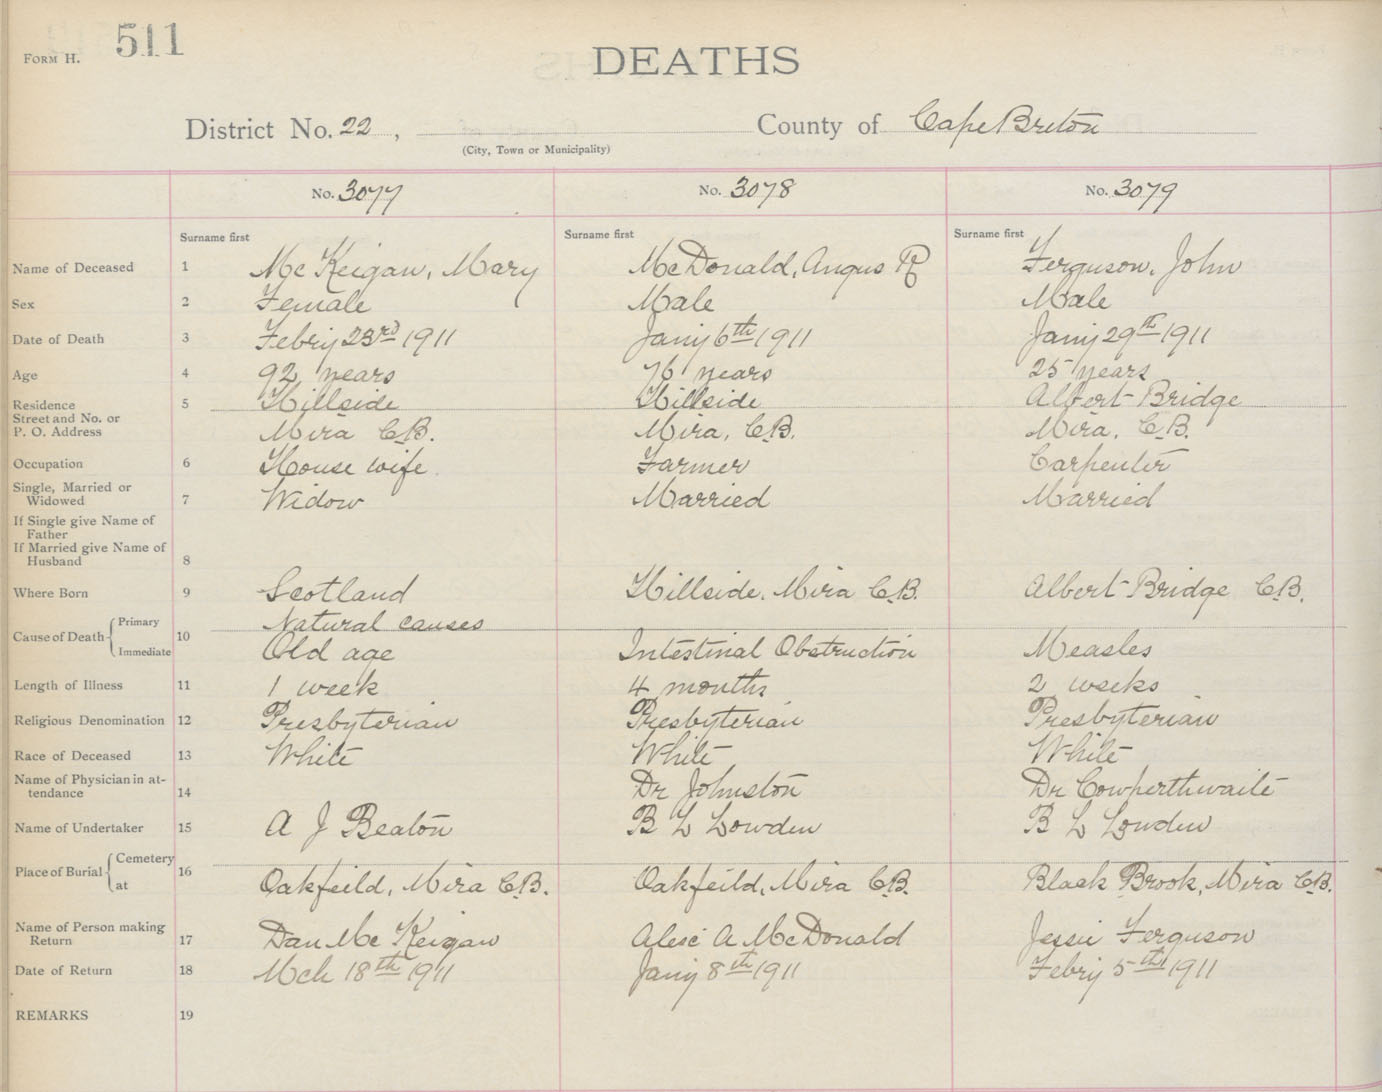 FORM H. 511
DEATHS
District No. 22 , County of Cape Breton
(City, Town or Municipality)
No. 3077 No. 3078 No. 3079
Surname first Surname first Surname first
Name of Deceased 1 McKeigan, Mary McDonald, Angus R Ferguson, John
Sex 2 Female Male Male
Date of Death 3 Febry 23rd 1911 Jany 6th 1911 Jany 29th 1911
Age 4 92 years 76 years 25 years
Residence 5 Hillside Hillside Albert Bridge
Street and No. or
P. O. Address Mira C.B. Mira, C.B. Mira, C.B.
Occupation 6 House wife Farmer Carpenter
Single, Married or
Widowed 7 Widow Married Married
If Single give Name of
Father
If Married give Name of
Husband 8
Where Born 9 Scotland Hillside, Mira C.B. Albert Bridge C.B.
Primary Natural causes
Cause of Death 10
Immediate Old age Intestinal Obstruction Measles
Length of Illness 11 1 week 4 months 2 weeks
Religious Denomination 12 Presbyterian Presbyterian Presbyterian
Race of Deceased 13 White White White
Name of Physician in at-
tendance 14 Dr Johnston Dr Cowperthwaite
Name of Undertaker 15 A J Beaton B L Lowden B L Lowden
Cemetery
Place of Burial 16
at Oakfeild, Mira C.B. Oakfeild, Mira C.B. Black Brook, Mira C.B.
Name of Person making
Return 17 Dan McKeigan Alexr A McDonald Jessie Ferguson
Date of Return 18 Mch 18th 1911 Jany 8th 1911 Febry 5th 1911
REMARKS 19